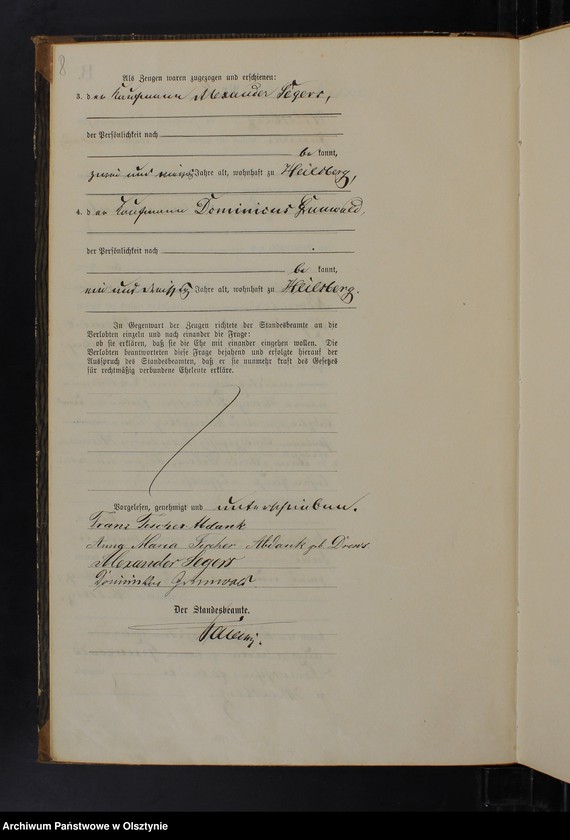 8
Als Zeugen waren zugezogen und erschienen:
3. der Kaufmann Alexander Segers,
der Persönlichkeit nach
be kannt,
zwei und Jahre alt, wohnhaft zu Heilsberg,
4. der Kaufmann Dominicus Grunwald,
der Persönlichkeit nach
be kannt,
ein und dreißig Jahre alt, wohnhaft zu Heilsberg.
In Gegenwart der Zeugen richtete der Standesbeamte an die
Verlobten einzeln und nach einander die Frage:
ob sie erklären, daß sie die Ehe mit einander eingehen wollen. Die
Verlobten beantworteten diese Frage bejahend und erfolgte hierauf der
Ausspruch des Standesbeamten, daß er sie nunmehr kraft des Gesetzes
für rechtmäßig verbundene Eheleute erkläre.
Vorgelesen, genehmigt und unterschrieben.
Franz Fischer Abdank
Anna Maria Fischer-Abdank geb. Drews
Alexander Segers
Dominikus Grunwald
Der Standesbeamte.
Archiwum Państwowe w Olsztynie